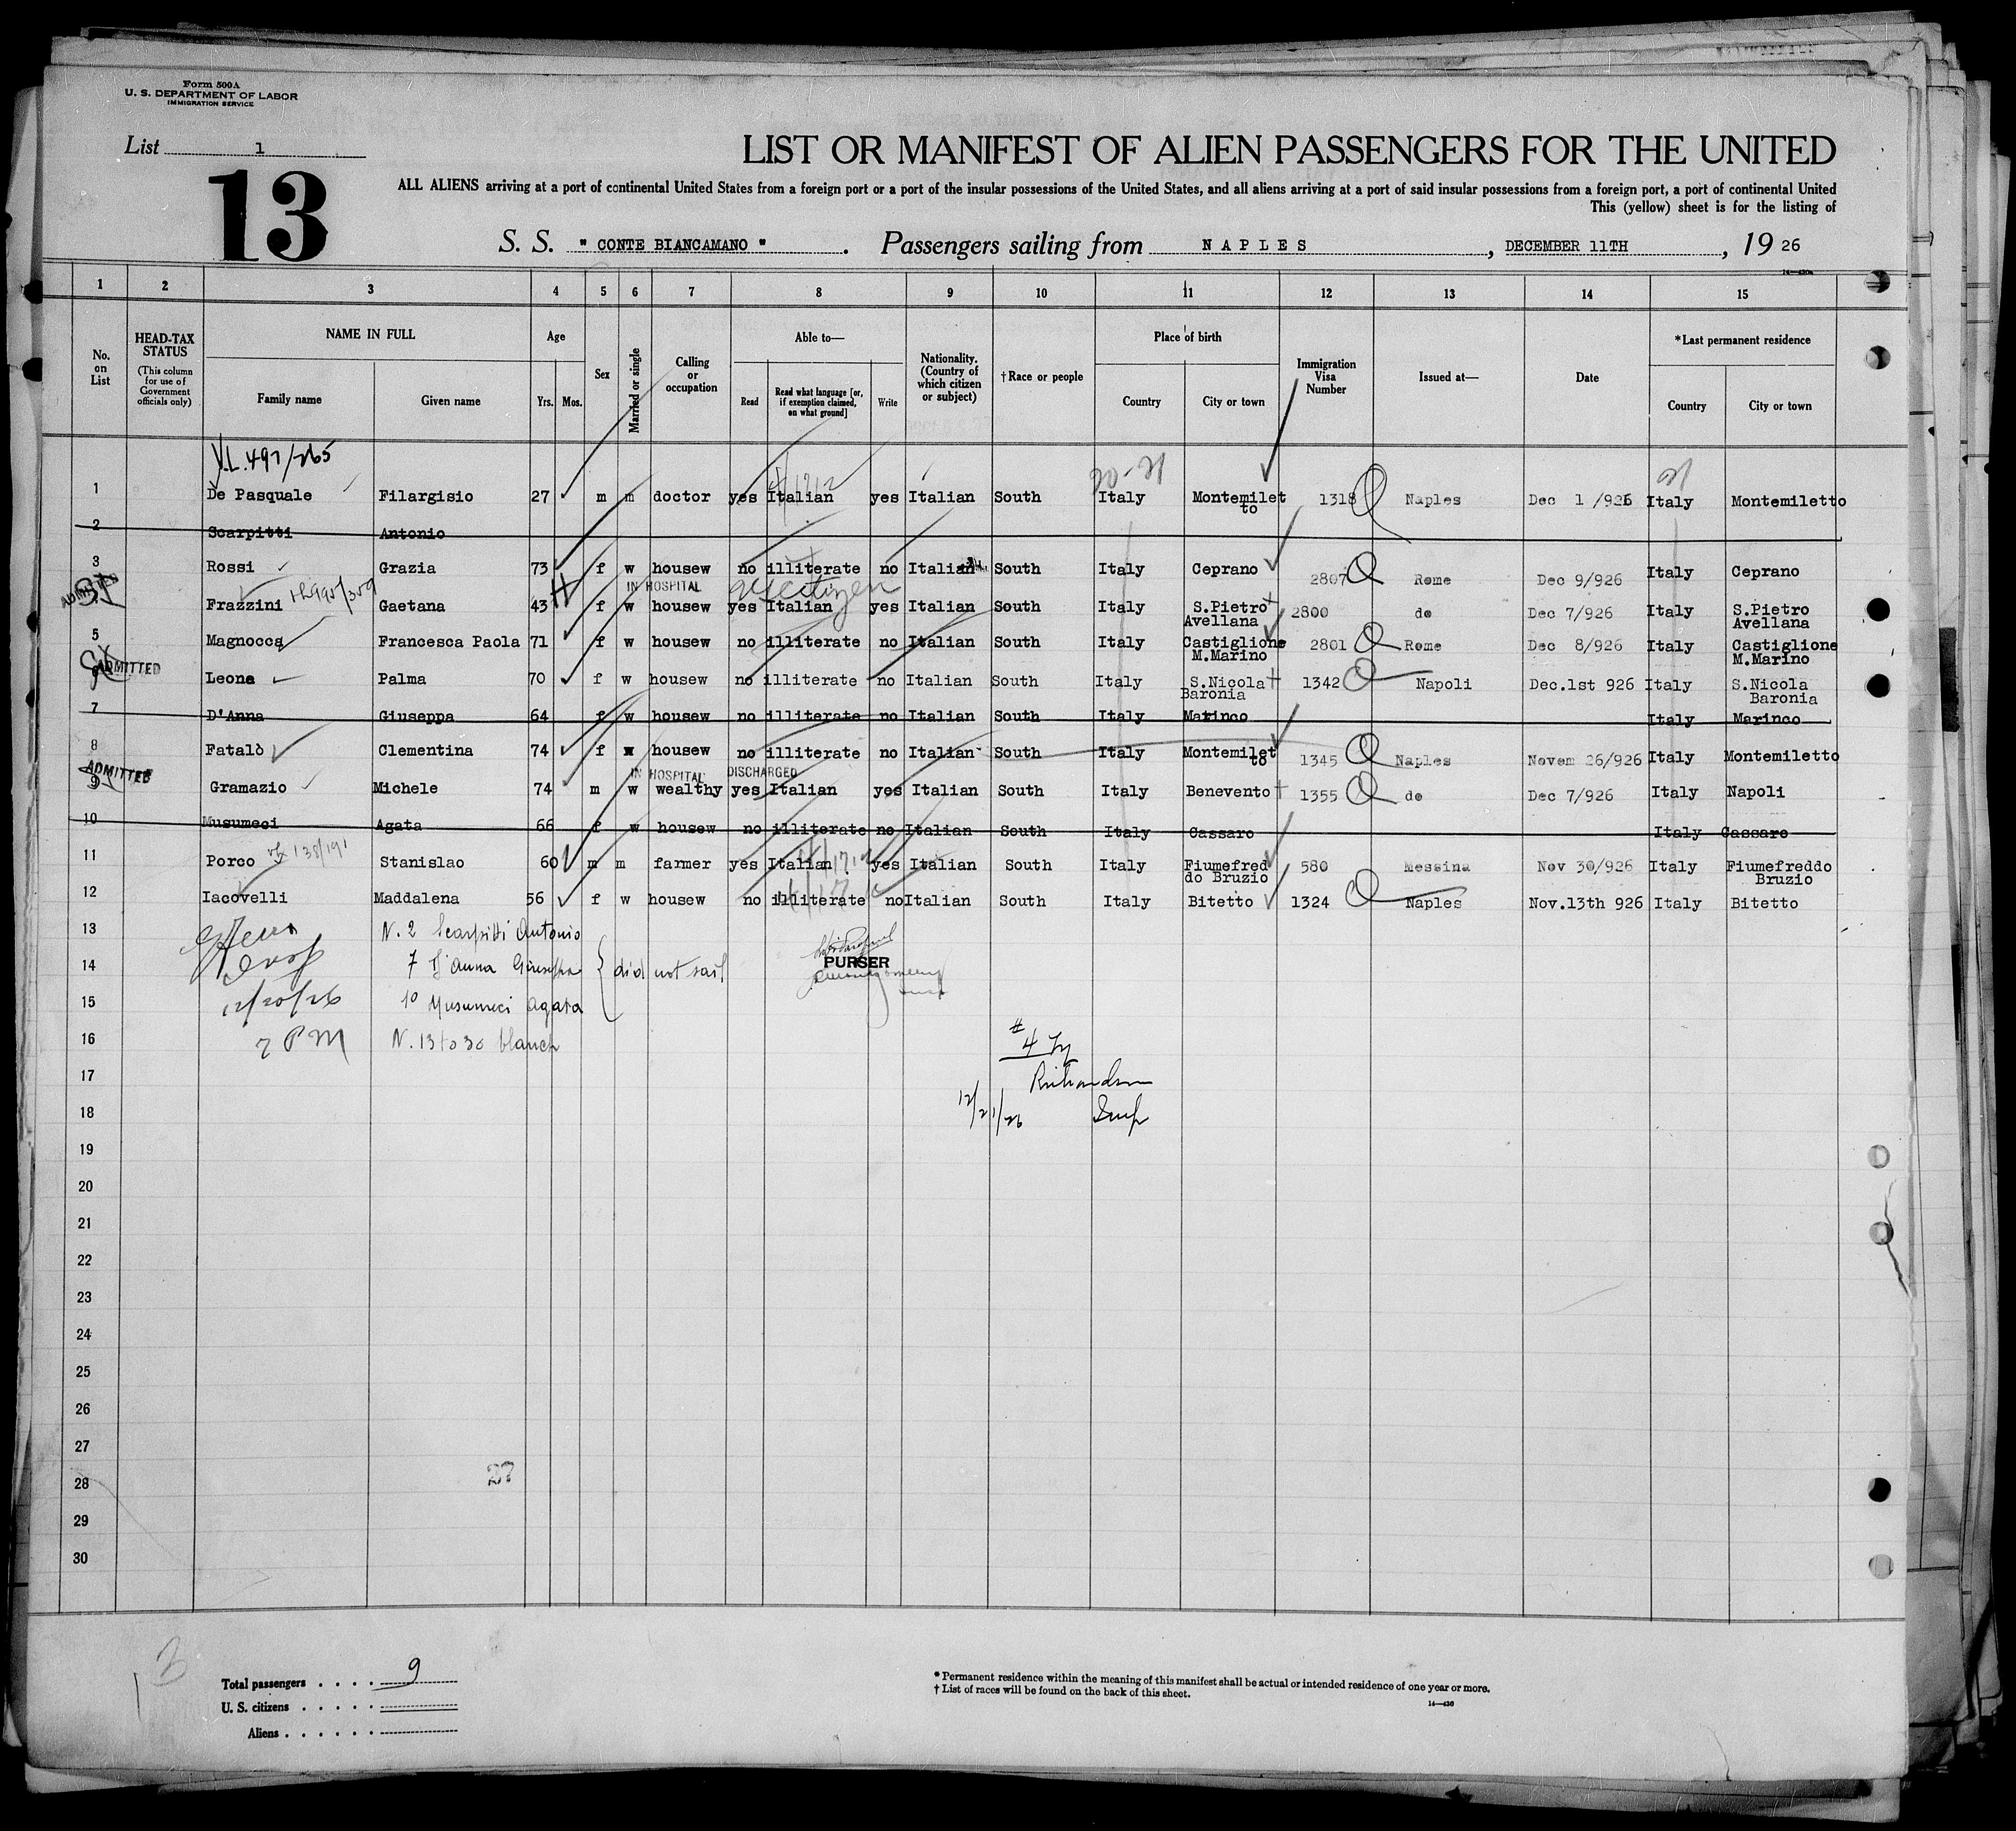 Form 500A
U. S. DEPARTMENT OF LABOR
IMMIGRATION SERVICE
List 1
13
LIST OR MANIFEST OF ALIEN PASSENGERS FOR THE UNITED
ALL ALIENS arriving at a port of continental United States from a foreign port or a port of the insular possessions of the United States, and all aliens arriving at a port of said insular possessions from a foreign port, a port of continental United
This (yellow) sheet is for the listing of
S. S. " CONTE BIANCAMANO ". Passengers sailing from NAPLES, DECEMBER 11TH, 19 26
1 2 3 4 5 6 7 8 9 10 11 12 13 14 15
No. on List
HEAD-TAX STATUS (This column for use of Government officials only)
NAME IN FULL
Family name Given name
Age
Yrs. Mos.
Sex
Married or single
Calling or occupation
Able to—
Read Read what language [or, if exemption claimed, on what ground] Write
Nationality. (Country of which citizen or subject)
†Race or people
Place of birth
Country City or town
Immigration Visa Number
Issued at—
Date
*Last permanent residence
Country City or town
V.L. 497/265
20-21
1 De Pasquale Filargisio 27 m m doctor yes Italian yes Italian South Italy Montemilet to 1318 Naples Dec 1 /926 Italy Montemiletto
2 Scarpitti Antonio
3 Rossi Grazia 73 f w housew no illiterate no Italian South Italy Ceprano 2807 Rome Dec 9/926 Italy Ceprano
ADMITTED
IN HOSPITAL
Frazzini Gaetana 43 f w housew yes Italian yes Italian South Italy S.Pietro Avellana 2800 do Dec 7/926 Italy S.Pietro Avellana
5 Magnocca Francesca Paola 71 f w housew no illiterate no Italian South Italy Castiglione M.Marino 2801 Rome Dec 8/926 Italy Castiglione M.Marino
ADMITTED
Leone Palma 70 f w housew no illiterate no Italian South Italy S.Nicola Baronia 1342 Napoli Dec.1st 926 Italy S.Nicola Baronia
7 D'Anna Giuseppa 64 f w housew no illiterate no Italian South Italy Marinco Italy Marinco
8 Fatalò Clementina 74 f housew no illiterate no Italian South Italy Montemilet to 1345 Naples Novem 26/926 Italy Montemiletto
ADMITTED
IN HOSPITAL DISCHARGED
9 Gramazio Michele 74 m w wealthy yes Italian yes Italian South Italy Benevento 1355 do Dec 7/926 Italy Napoli
10 Musumeci Agata 66 f w housew no illiterate no Italian South Italy Cassaro Italy Cassaro
11 Porco Stanislao 60 m m farmer yes Italian yes Italian South Italy Fiumefred do Bruzio 580 Messina Nov 30/926 Italy Fiumefreddo Bruzio
12 Iacovelli Maddalena 56 f w housew no illiterate no Italian South Italy Bitetto 1324 Naples Nov.13th 926 Italy Bitetto
13 N. 2 Scarpitti Antonio
14 7 D'Anna Giuseppa did not sail PURSER
15 12/20/26 10 Musumeci Agata
16 2 PM N. 13 to 30 blanch
# 4
17 Richardson
18 12/21/26 Insp
19
20
21
22
23
24
25
26
27
28 27
29
30
13
Total passengers . . . . 9
U. S. citizens . . . . .
Aliens . . . . . .
* Permanent residence within the meaning of this manifest shall be actual or intended residence of one year or more.
† List of races will be found on the back of this sheet.
14—430